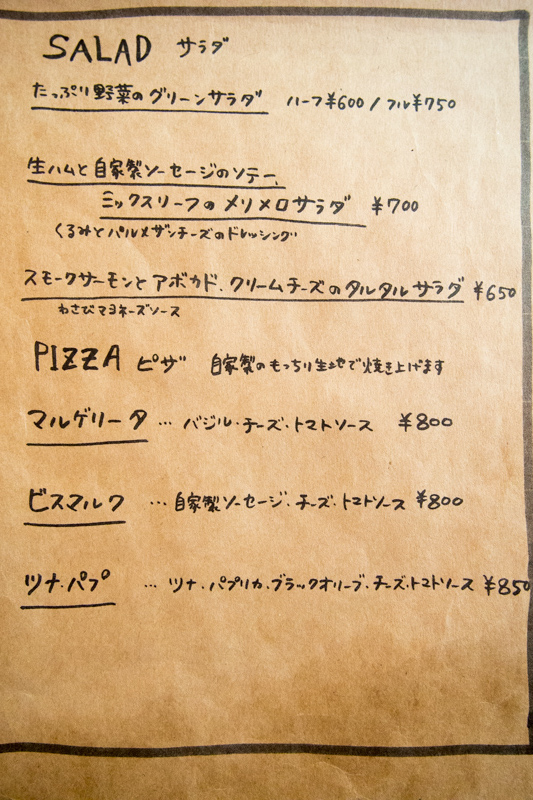 SALAD サラダ
たっぷり野菜のグリーンサラダ ハーフ¥600 / フル¥750
生ハムと自家製ソーセージのソテー、
ミックスリーフのメリメロサラダ ¥700
くるみとパルメザンチーズのドレッシング
スモークサーモンとアボカド、クリームチーズのタルタルサラダ ¥650
わさびマヨネーズソース
PIZZA ピザ 自家製のもっちり生地で焼き上げます
マルゲリータ … バジル・チーズ・トマトソース ¥800
ビスマルク … 自家製ソーセージ・チーズ・トマトソース ¥800
ツナ・パプ … ツナ・パプリカ・ブラックオリーブ・チーズ・トマトソース ¥850